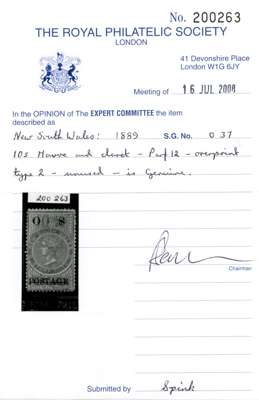 No. 200263
THE ROYAL PHILATELIC SOCIETY
LONDON
41 Devonshire Place
London W1G 6JY
Meeting of 16 JUL 2008
In the OPINION of The EXPERT COMMITTEE the item
described as
New South Wales: 1889 S.G. No. O 37
10s Mauve and claret - Perf 12 - overprint
type 2 - unused - is Genuine.
200 263
O S
POSTAGE
Chairman
Submitted by Spink